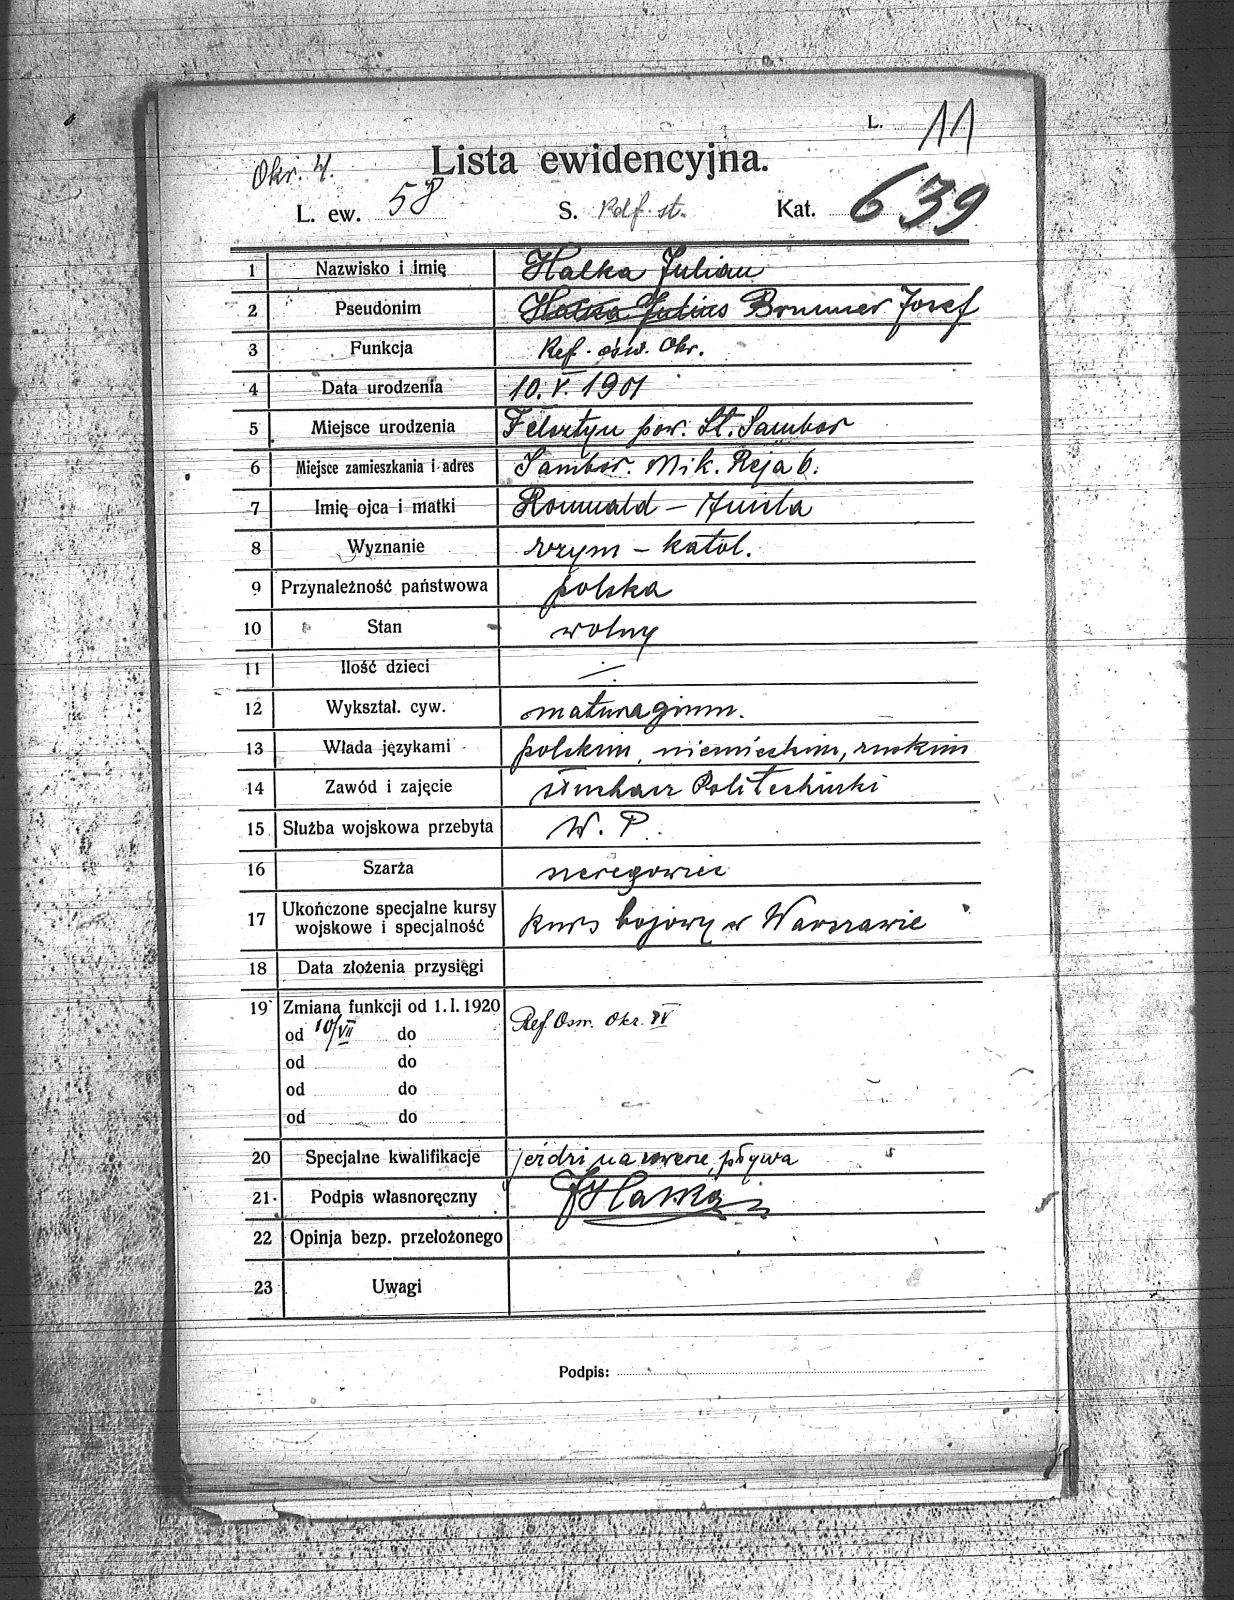 L. 11
Okr. 4.
Lista ewidencyjna.
L. ew. 58 S. Kat. 639
1 Nazwisko i imię Halka Julian
2 Pseudonim Halka Julius Brunner Josef
3 Funkcja Ref. ośw. Okr.
4 Data urodzenia 10.V.1901
5 Miejsce urodzenia Felsztyn pow. St. Sambor
6 Miejsce zamieszkania i adres Sambor. Mik. Reja 6.
7 Imię ojca i matki Romuald –
8 Wyznanie rzym – katol.
9 Przynależność państwowa polska
10 Stan wolny
11 Ilość dzieci
12 Wykształ. cyw. matura gimn.
13 Włada językami polskim, niemieckim, ruskim
14 Zawód i zajęcie słuchacz Politechniki
15 Służba wojskowa przebyta W. P.
16 Szarża szeregowiec
17 Ukończone specjalne kursy wojskowe i specjalność kurs bojowy w Warszawie
18 Data złożenia przysięgi
19 Zmiana funkcji od 1. I. 1920
od 10/VII do Ref. Osw. Okr. IV
od do
od do
od do
20 Specjalne kwalifikacje jeździ na rowerze, pływa
21 Podpis własnoręczny JHalka
22 Opinja bezp. przełożonego
23 Uwagi
Podpis: